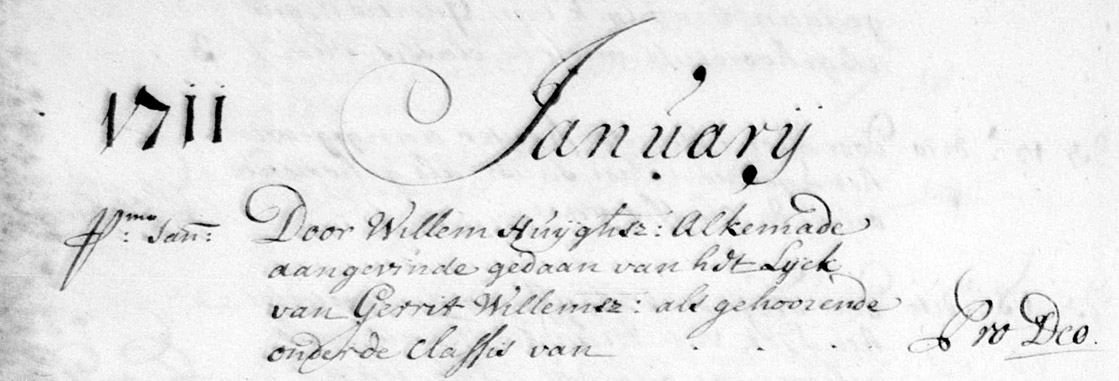 1711 Januarij
P:mo Jan: Door Willem Huijghsz: Alkemade
aangevinde gedaan van het Lijck
van Gerrit Willemsz: als gehoorende
onder de classis van . . . Pro Deo.